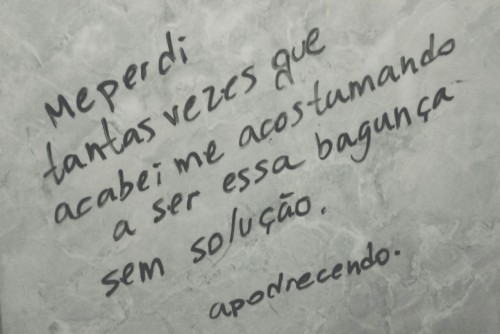 Me perdi
tantas vezes que
acabei me acostumando
a ser essa bagunça
sem solução.
apodrecendo.